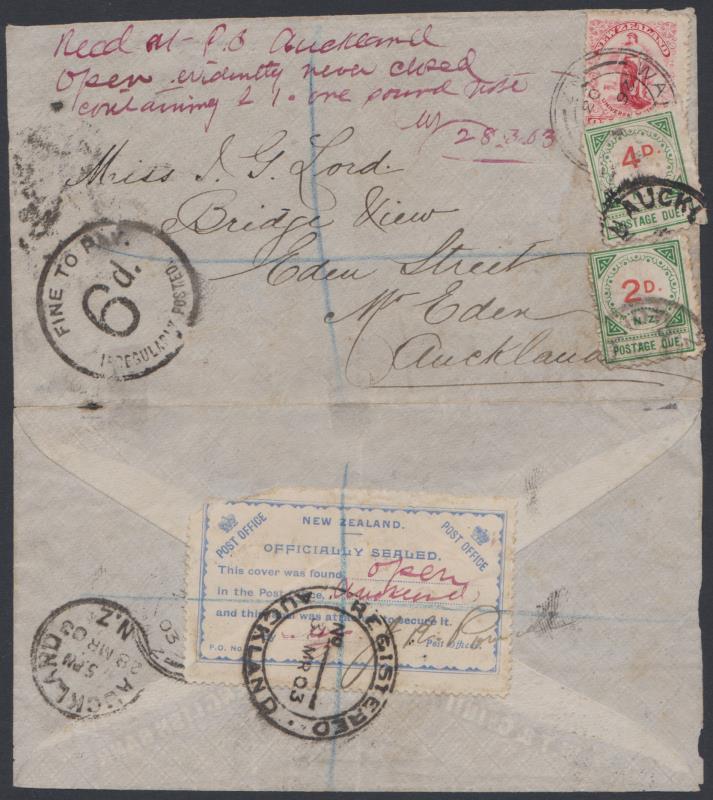 Recd at P.O Auckland
Open evidently never closed
containing £1. one pound note
28.3.03
Miss J. G. Lord.
Bridge View
Eden Street
Mt Eden
Auckland
FINE TO PAY.
6d.
IRREGULARLY POSTED.
NEW ZEALAND
UNIVERSAL
WA
4D.
POSTAGE DUE.
AUCKL
2D.
N.Z.
POSTAGE DUE.
POST OFFICE
NEW ZEALAND.
POST OFFICE
OFFICIALLY SEALED.
This cover was found open
in the Post Office, Auckland,
and this was atta to secure it.
P.O. No.
Post Officer.
REGISTERED
AUCKLAND
MR 03
AUCKLAND N.Z
5.PM
28 MR 03